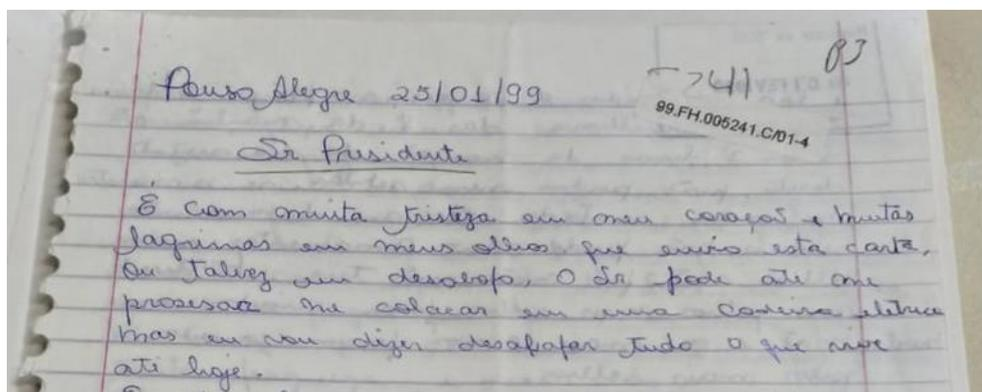 83
5241
99.FH.005241.C/01-4
Pouso Alegre 25/01/99
Sr Presidente
É com muita tristeza em meu coração e muitas
lagrimas em meus olhos que envio esta carta,
ou talvez um desabafo, O Sr pode até me
prosesar me colocar em uma cadeira eletrica
mas eu vou dizer desabafar tudo o que vive
até hoje.